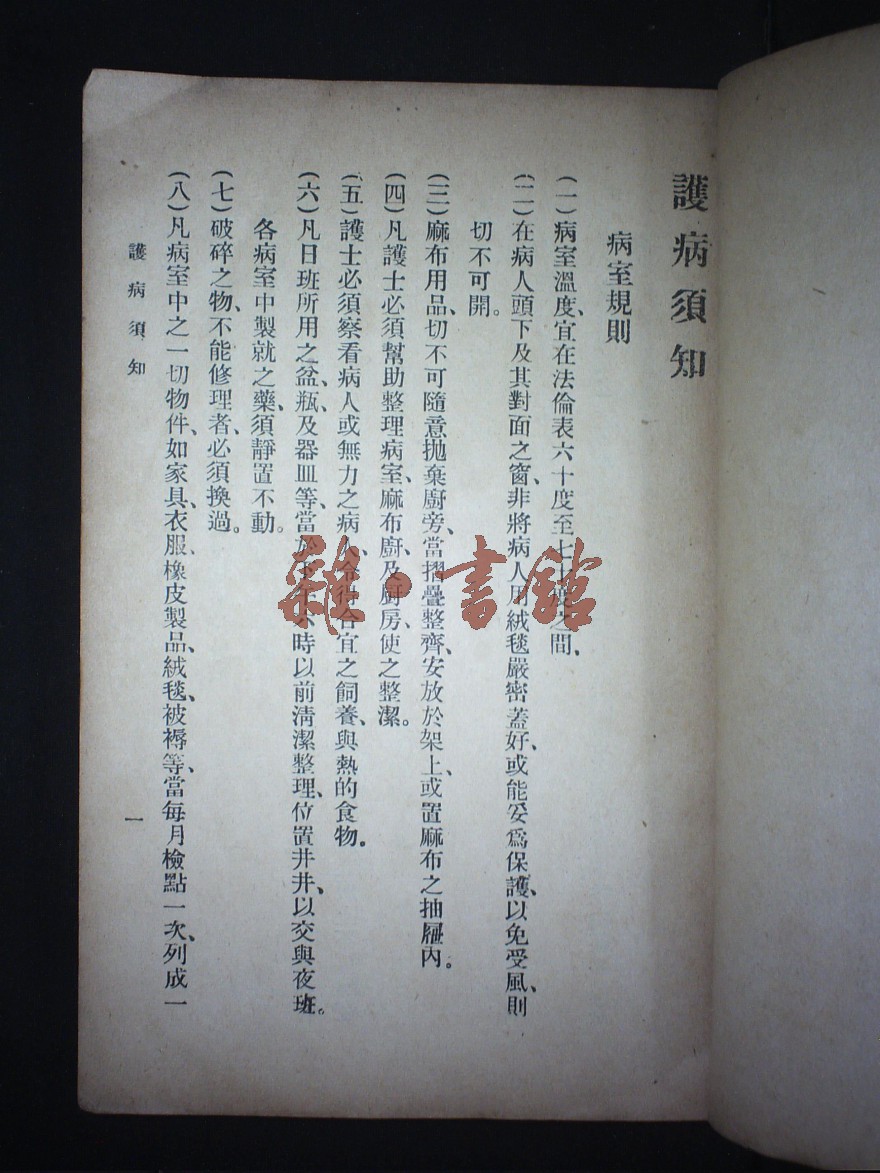 護病須知
病室規則
(一)病室溫度、宜在法倫表六十度至七十度之間、
(二)在病人頭下及其對面之窗、非將病人用絨毯嚴密蓋好、或能妥爲保護、以免受風、則
切不可開。
(三)麻布用品、切不可隨意拋棄廚旁、當摺疊整齊、安放於架上、或置麻布之抽屜內。
(四)凡護士必須幫助整理病室、麻布廚、及厨房、使之整潔。
(五)護士必須察看病人或無力之病人、得合宜之飼養、與熱的食物。
(六)凡日班所用之盆、瓶、及器皿等、當於時以前淸潔整理、位置井井、以交與夜班。
各病室中製就之藥、須靜置不動。
(七)破碎之物、不能修理者、必須換過。
(八)凡病室中之一切物件、如家具、衣服、橡皮製品、絨毯、被褥等、當每月檢點一次、列成一
護病須知
一
雜·書館